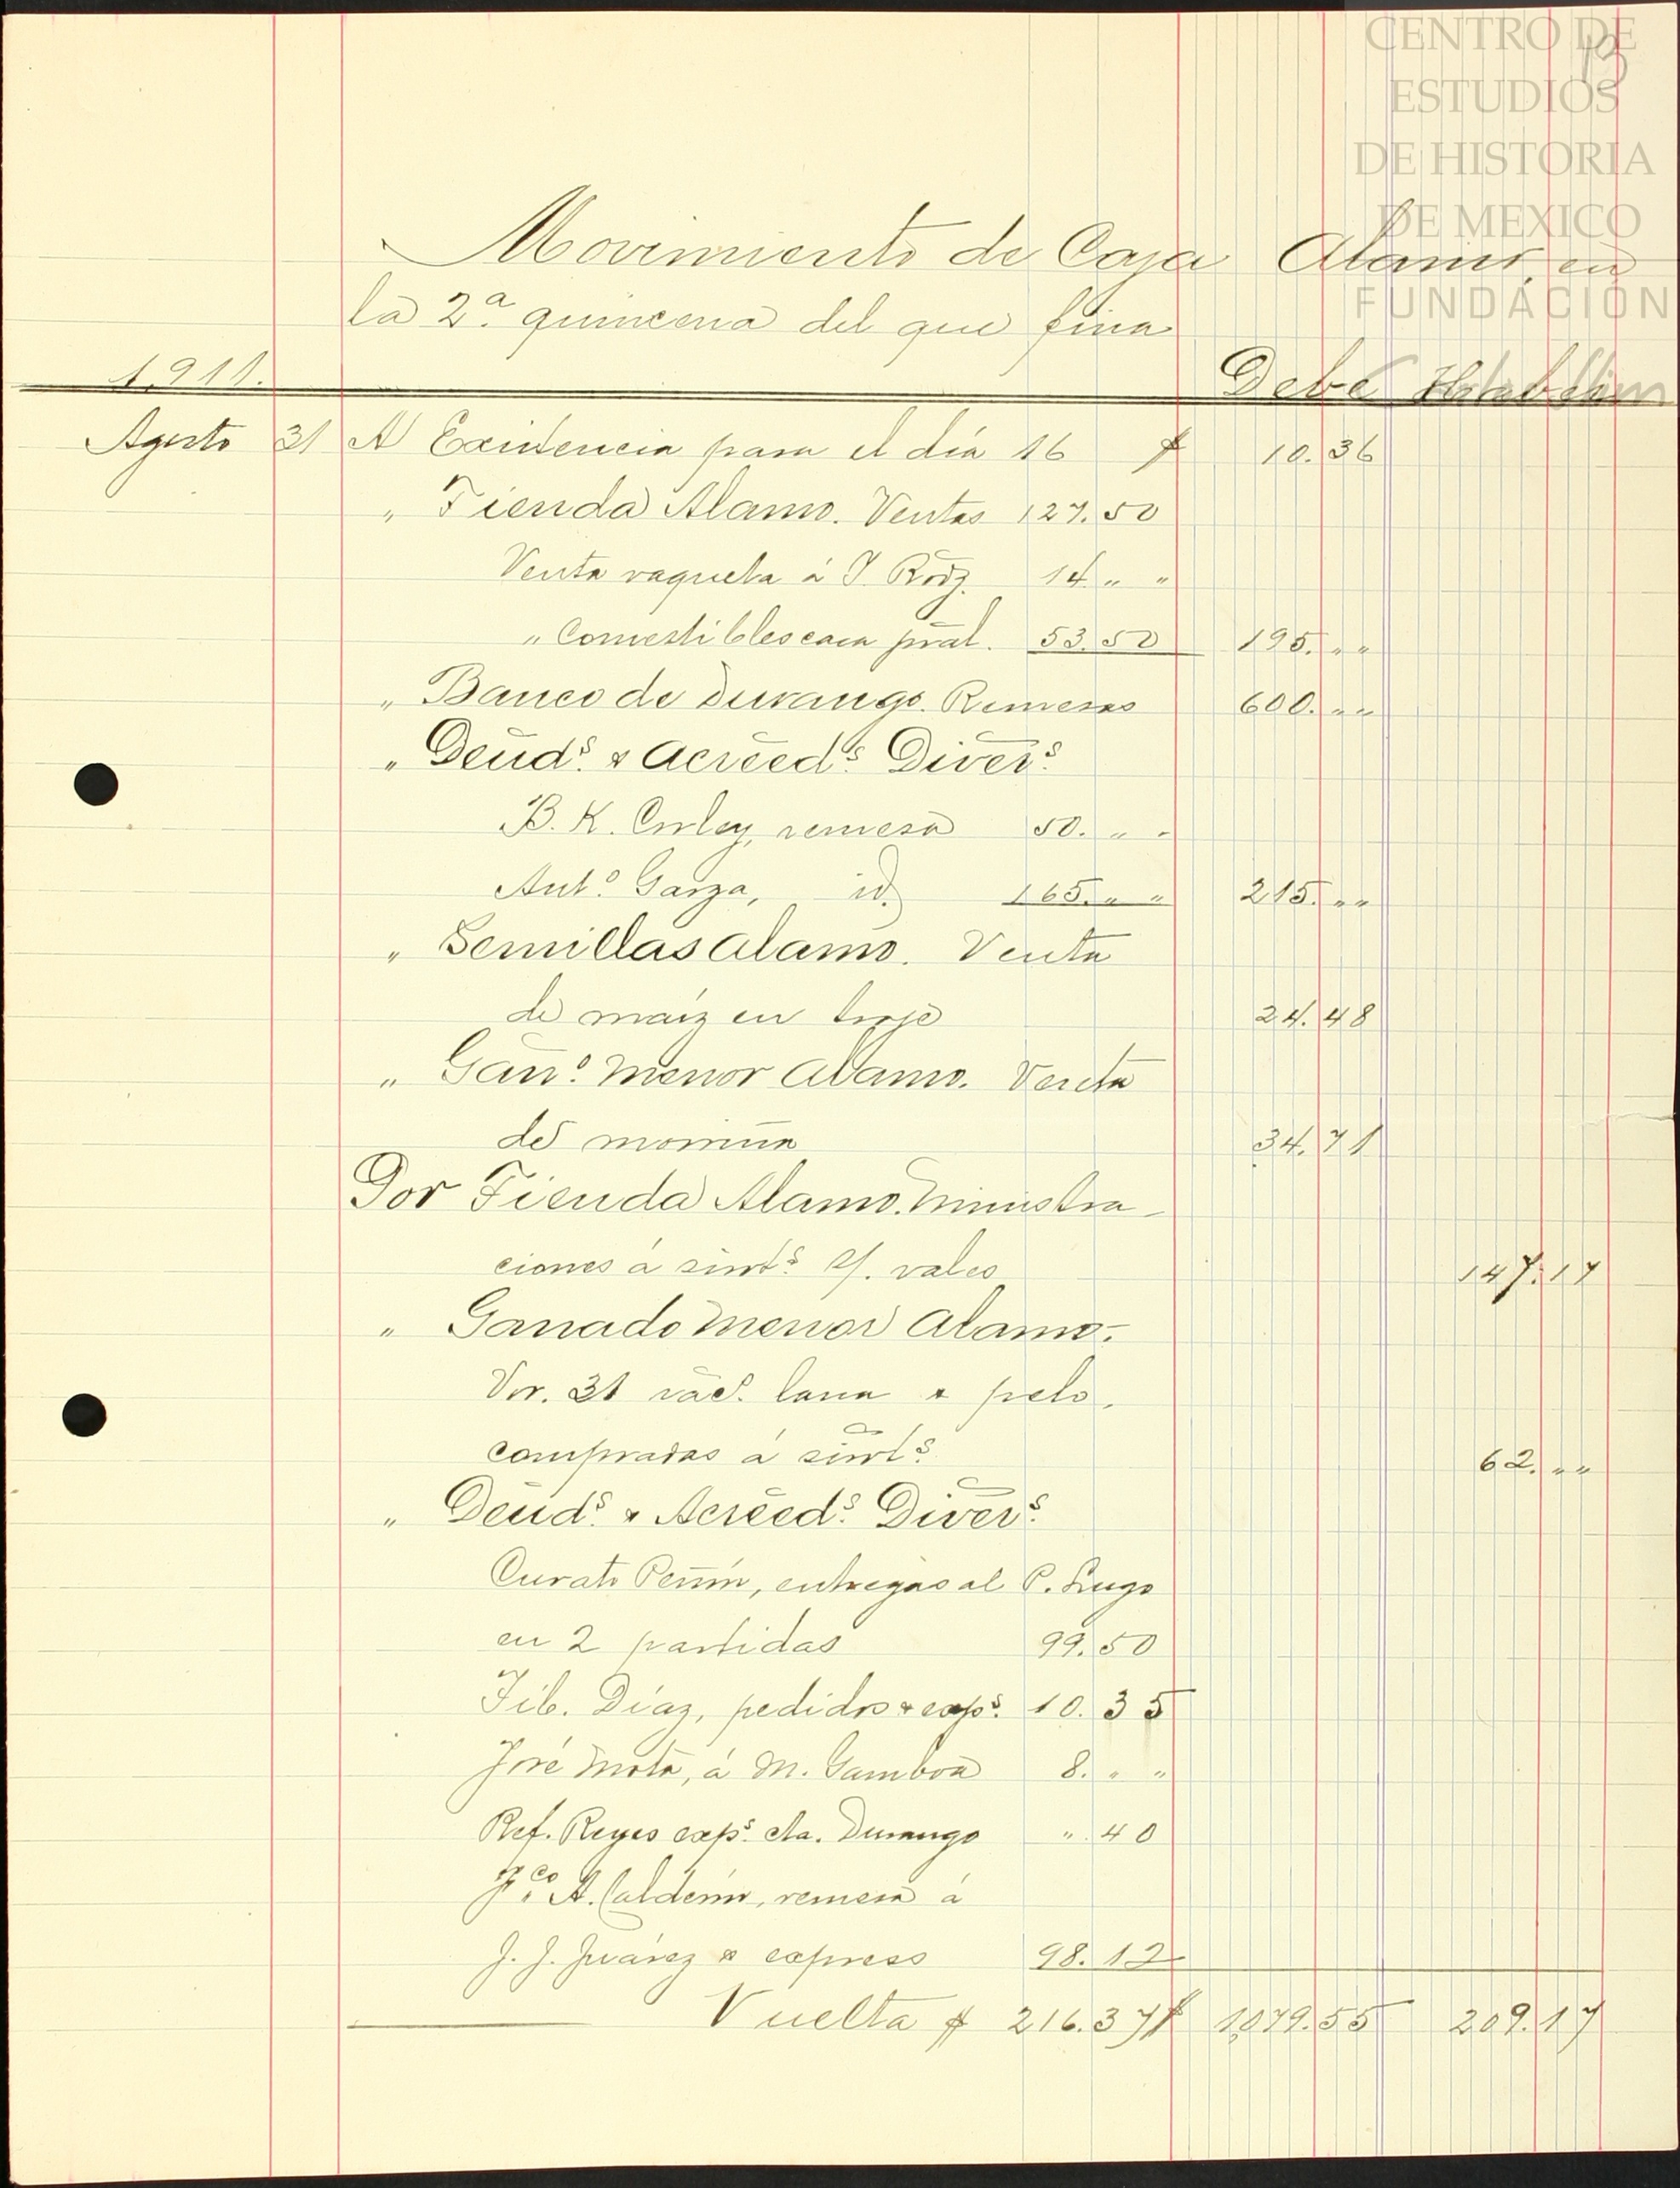 CENTRO DE
ESTUDIOS
DE HISTORIA
DE MEXICO
FUNDACIÓN
Movimiento de Caja Alamo, en
la 2ª quincena del que fina
1,911. Debe
Agosto 31 A Existencia para el día 16 $ 10.36
" Tienda Alamo. Ventas 127.50
Venta vaqueta á J. Rodz. 14. " "
" Comestibles casa pral. 53.50 195. " "
" Banco de Durango. Remesas 600. " "
" Deuds. & Acreeds. Divers.
B. K. Corley, remesa 50. " "
Anto. Garza, id. 165. " " 215. " "
" Semillas Alamo. Venta
de maíz en troje 24.48
" Gano. Menor Alamo. Venta
de 34.71
Por Tienda Alamo. Ministra-
ciones á sirvts. s/. vales 147.17
" Ganado Menor Alamo.
Vor. 31 lana & pelo,
compradas á sirvts. 62. " "
" Deuds. & Acreeds. Divers.
Curato Peñón, entregas al P. Lugo
en 2 partidas 99.50
Tib. Díaz, pedidos & exps. 10.35
José Mota, á M. Gamboa 8. " "
Ref. Reyes exps. cta. Durango ". 40
Fco. A. Calderón, remesa á
J. J. Juárez & express 98.12
Vuelta $ 216.37 $ 1,079.55 209.17